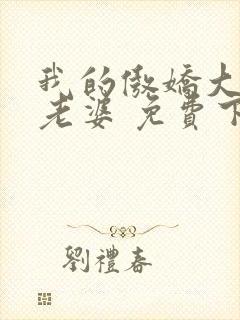 我的傲嬌大
老婆 免費下
劉禮春